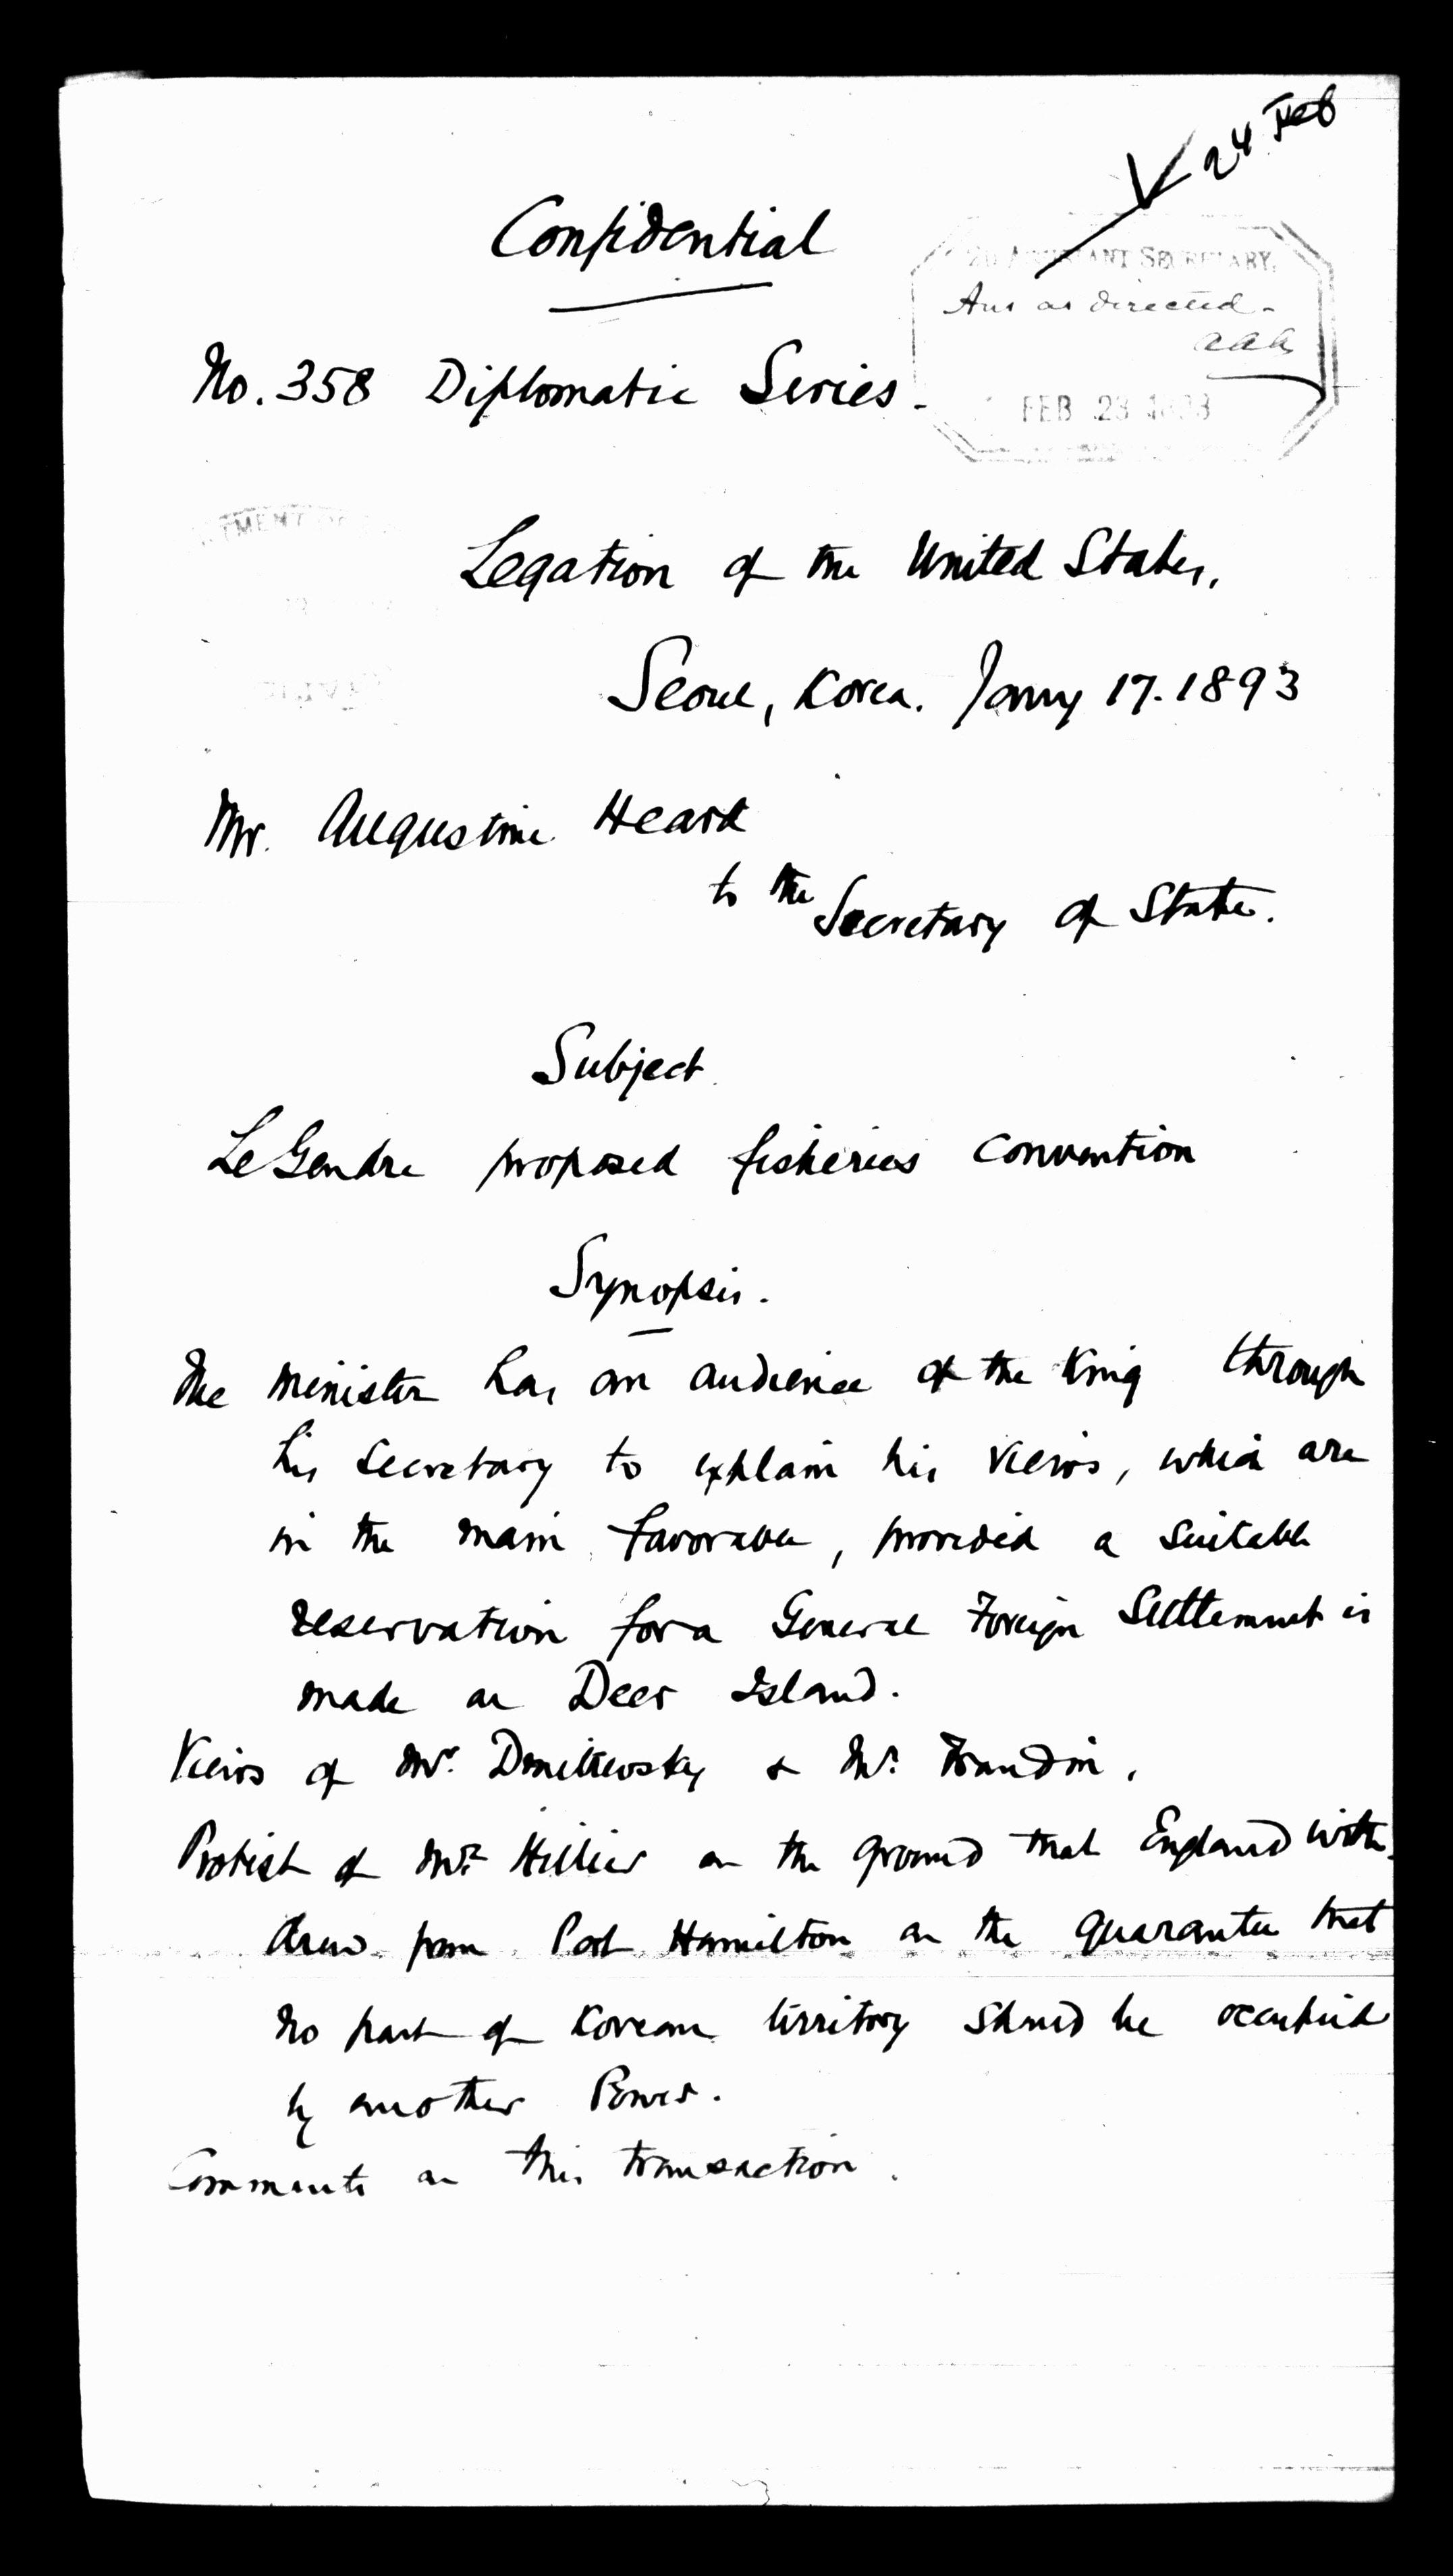 24 Feb
Confidential
2D ASSISTANT SECRETARY,
Ans as directed.
AAA
No. 358 Diplomatic Series.
FEB 23 1893
TMENT OF
Legation of the United States,
Seoul, Korea. Janry 17. 1893
Mr. Augustine Heard
to the Secretary of State.
Subject
LeGendre proposed fisheries convention
Synopsis.
The Minister has an audience of the King through
his Secretary to explain his views, which are
in the main favorable, provided a suitable
reservation for a General Foreign Settlement is
made on Deer Island.
Views of Mr. Dmitrevsky & Mr. Frandin.
Protest of Mr. Hillier on the ground that England with-
drew from Port Hamilton on the guarantee that
no part of Korean territory should be occupied
by another Power.
Comments on this transaction.